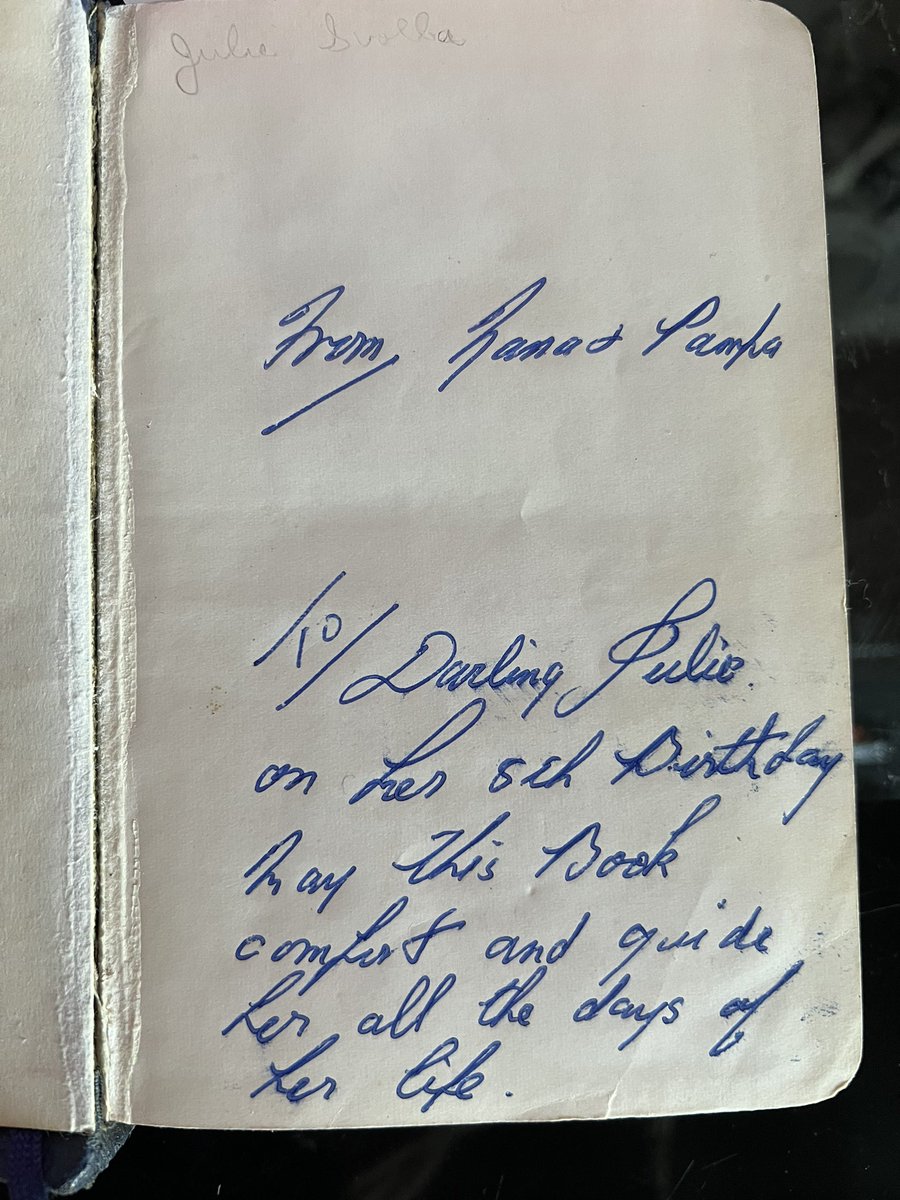 Julie
From Nana & Pampa
/To/ Darling Julie.
on her Birthday
May this Book
comfort and guide
her all the days of
her life.